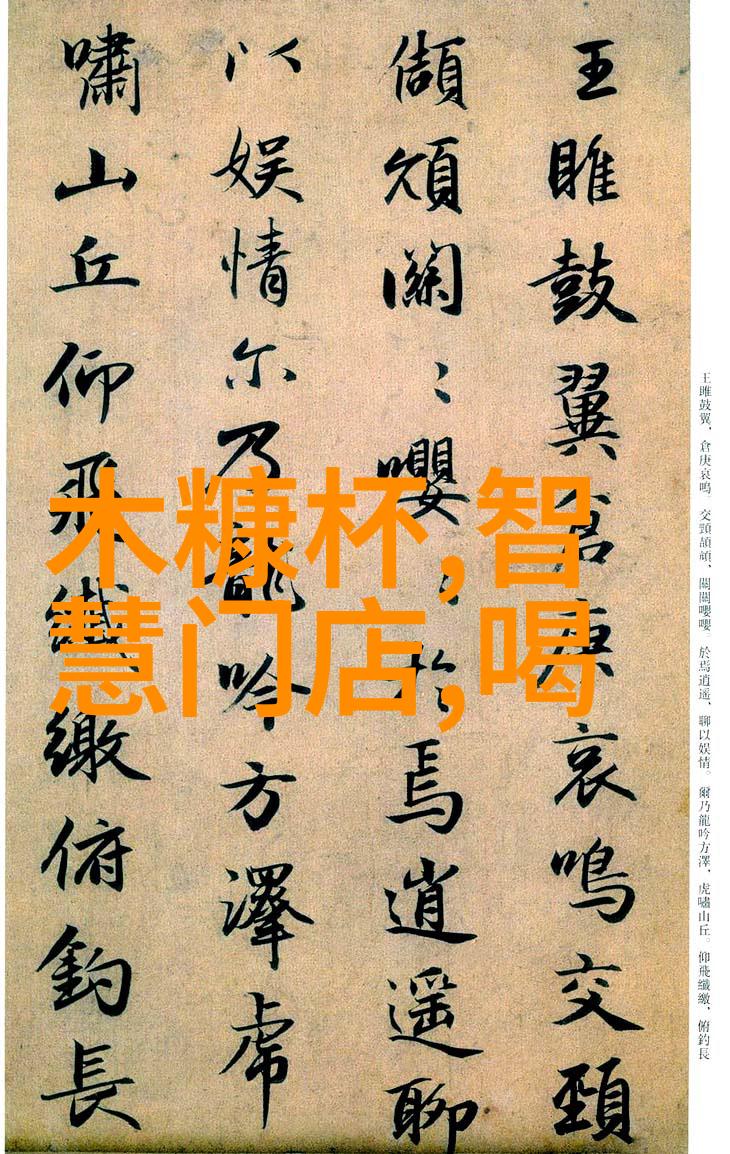 王雎鼓翼倉庚哀鳴交頸
頡頏關〻嚶〻於焉逍遥聊
以娱情尔乃龍吟方澤虎
嘯山丘仰飛纖繳俯釣長
木糠杯,智
慧门店,喝
王雎鼓翼，倉庚哀鳴。交頸頡頏，關關嚶嚶。於焉逍遥，聊以娱情。爾乃龍吟方澤，虎嘯山丘。仰飛纖繳，俯釣長